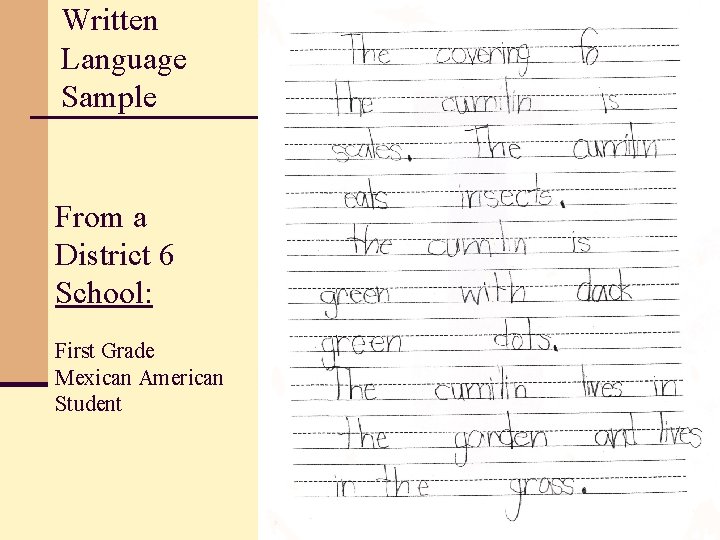 Written
Language
Sample
From a
District 6
School:
First Grade
Mexican American
Student
The covering fo
the cumilin is
scales. The cumilin
eats insects.
the cumlin is
green with dack
green dots.
The cumilin lives in
the garden and lives
in the grass.